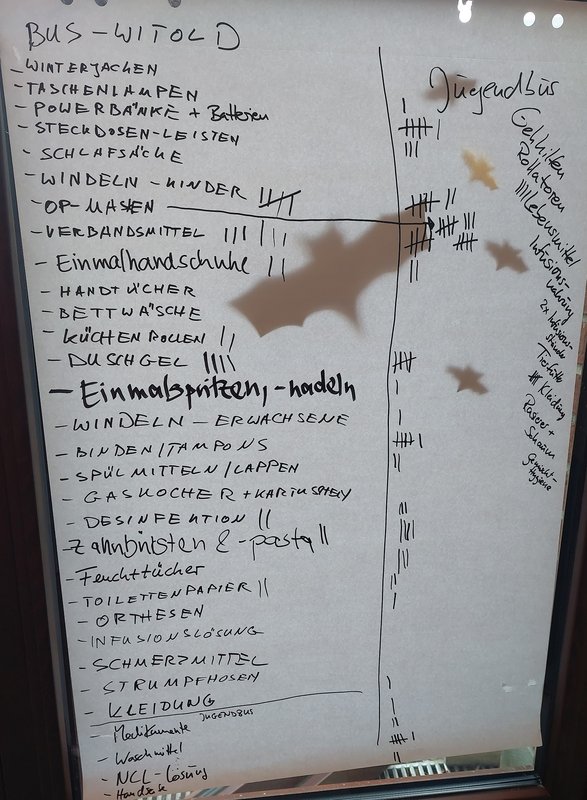 BUS – WITOLD
– WINTERJACKEN
– TASCHENLAMPEN
– POWERBÄNKE + Batterien
– STECKDOSEN-LEISTEN
– SCHLAFSÄCKE
– WINDELN – KINDER
– OP-MASKEN
– VERBANDSMITTEL
– Einmalhandschuhe
– HANDTÜCHER
– BETTWÄSCHE
– KÜCHENROLLEN
– DUSCHGEL
– Einmalspritzen, -nadeln
– WINDELN – ERWACHSENE
– BINDEN/TAMPONS
– SPÜLMITTELN/LAPPEN
– GASKOCHER + KARTUSCHEN
– DESINFEKTION
– Zahnbürsten & -pasta
– Feuchttücher
– TOILETTENPAPIER
– ORTHESEN
– INFUSIONSLÖSUNG
– SCHMERZMITTEL
– STRUMPFHOSEN
– KLEIDUNG
JUGENDBUS
– Medikamente
– Waschmittel
– NCL-Lösung
Jugendbus
Gehhilfen
Rollatoren
Lebensmittel
Infusions-
nahrung
2x Infusions-
ständer
Kleidung
Rasierer +
Schaum